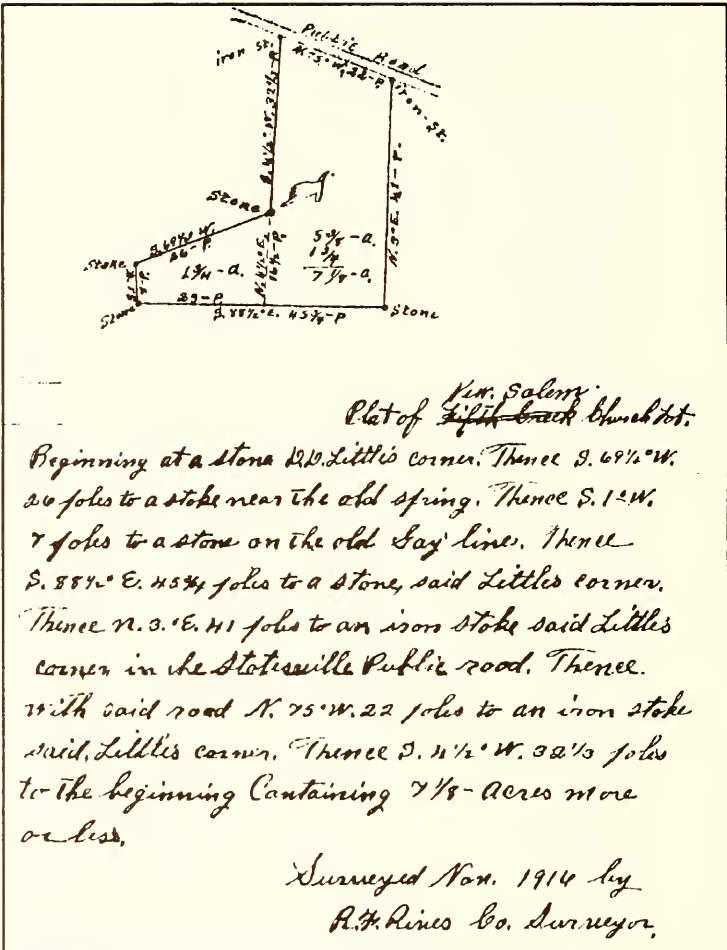 Public Road
iron st.
N. 75° W. 22-P.
iron-St.
S. 4½° W. 32⅓-P.
N. 3° E. 41-P.
Stone
S. 69½ W.
26-P.
5⅜-a.
1¾
7⅛-a.
N. 4½° E.
16½-P.
Stone
1¾-a.
S. 1 W.
7-P.
Stone
23-P.
S. 88½° E. 45¾-P
Stone
New. Salem.
Plat of Fifth Creek Church Lot.
Beginning at a stone D.D. Little's corner. Thence S. 69½° W.
26 poles to a stake near the old spring. Thence S. 1° W.
7 poles to a stone on the old Gay line. Thence
S. 88½° E. 45¾ poles to a stone, said Little's corner.
Thence N. 3.° E. 41 poles to an iron stake said Little's
corner in the Statesville Public road. Thence.
with said road N. 75° W. 22 poles to an iron stake
said, Little's corner. Thence S. 4½° W. 32⅓ poles
to the beginning Containing 7⅛- Acres more
or less.
Surveyed Nov. 1914 by
R.F. Rives Co. Surveyor.